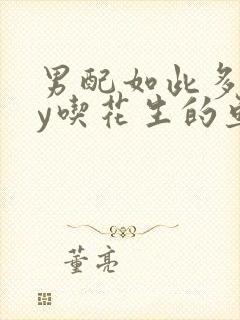 男配如此多
y喫花生的
董亮